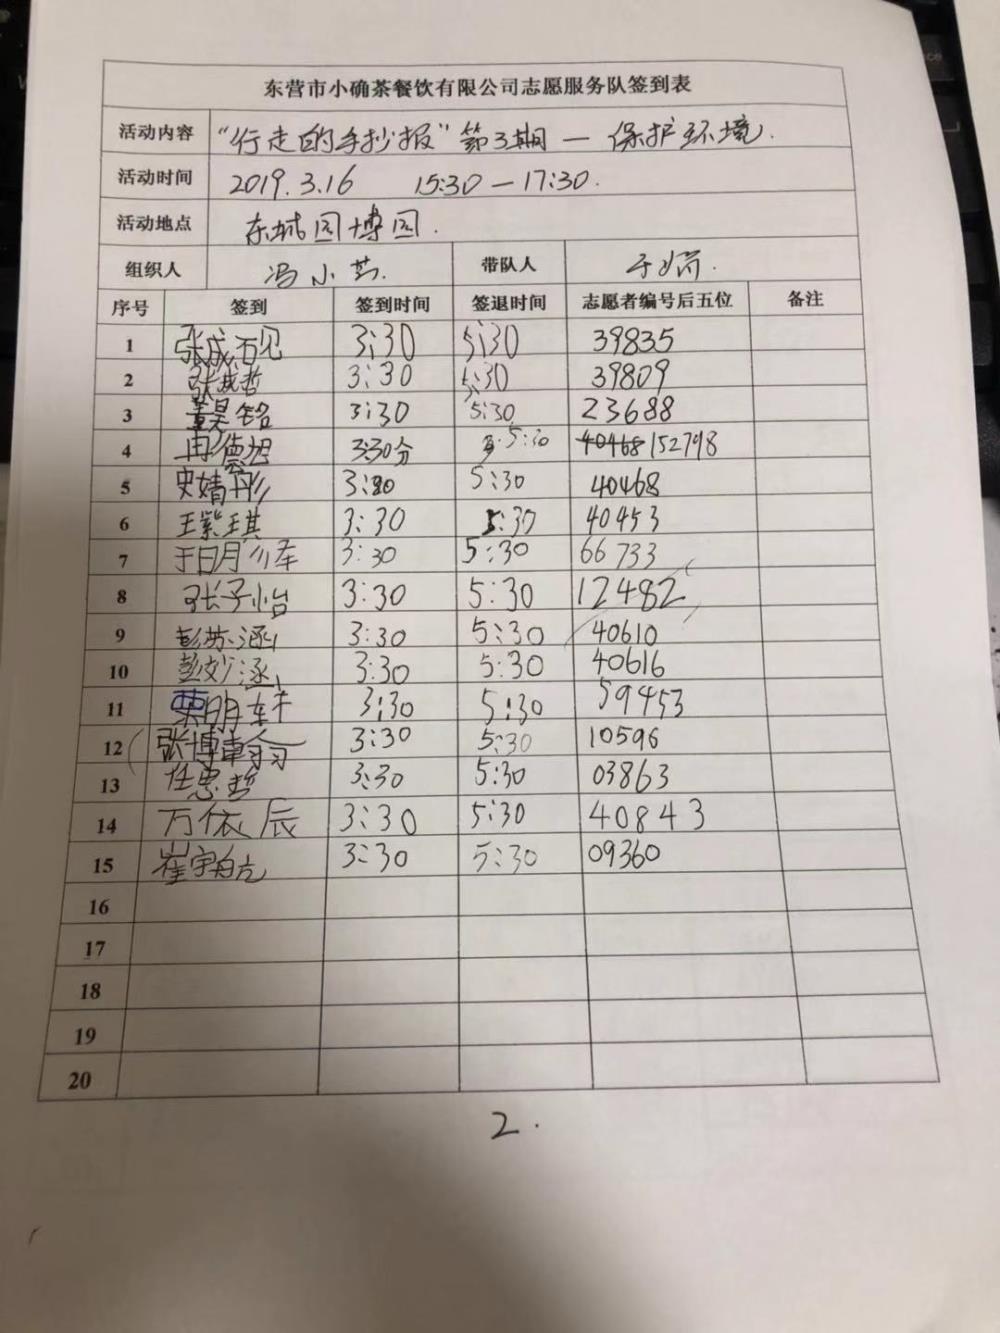 东营市小确茶餐饮有限公司志愿服务队签到表
活动内容 “行走的手抄报”第3期 — 保护环境.
活动时间 2019.3.16 15:30—17:30.
活动地点 东城园博园.
组织人 冯小 带队人 于
序号 签到 签到时间 签退时间 志愿者编号后五位 备注
1 张成砚 3:30 5:30 39835
2 张成哲 3:30 5:30 39809
3 董昊铭 3:30 5:30 23688
4 冉德旭 3:30分 5:30 152798
5 史婧彤 3:30 5:30 40468
6 王紫琪 3:30 5:30 40453
7 于明泽 3:30 5:30 66733
8 张子怡 3:30 5:30 12482
9 彭苏涵 3:30 5:30 40610
10 彭妙涵 3:30 5:30 40616
11 栗明轩 3:30 5:30 59453
12 张博翰 3:30 5:30 10596
13 任思哲 3:30 5:30 03863
14 万依辰 3:30 5:30 40843
15 崔宇航 3:30 5:30 09360
16
17
18
19
20
2.